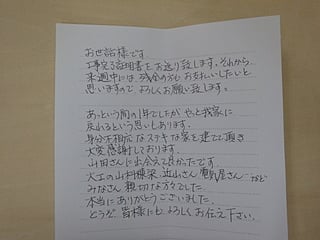 お世話様です
工事完了証明書をお送り致します。それから
来週中には、残金の方もお支払いしたいと
思いますので よろしくお願い致します。
あっという間の1年でしたが やっと我家に
戻れるという思いもあります。
身分不相応なステキな家を建てて頂き
大変感謝しております。
山田さんに出会えて良かったです。
大工の山村棟梁、近山さん 電気屋さん など
みなさん 親切な方々でした。
本当にありがとうございました。
どうぞ 皆様にも よろしくお伝え下さい。